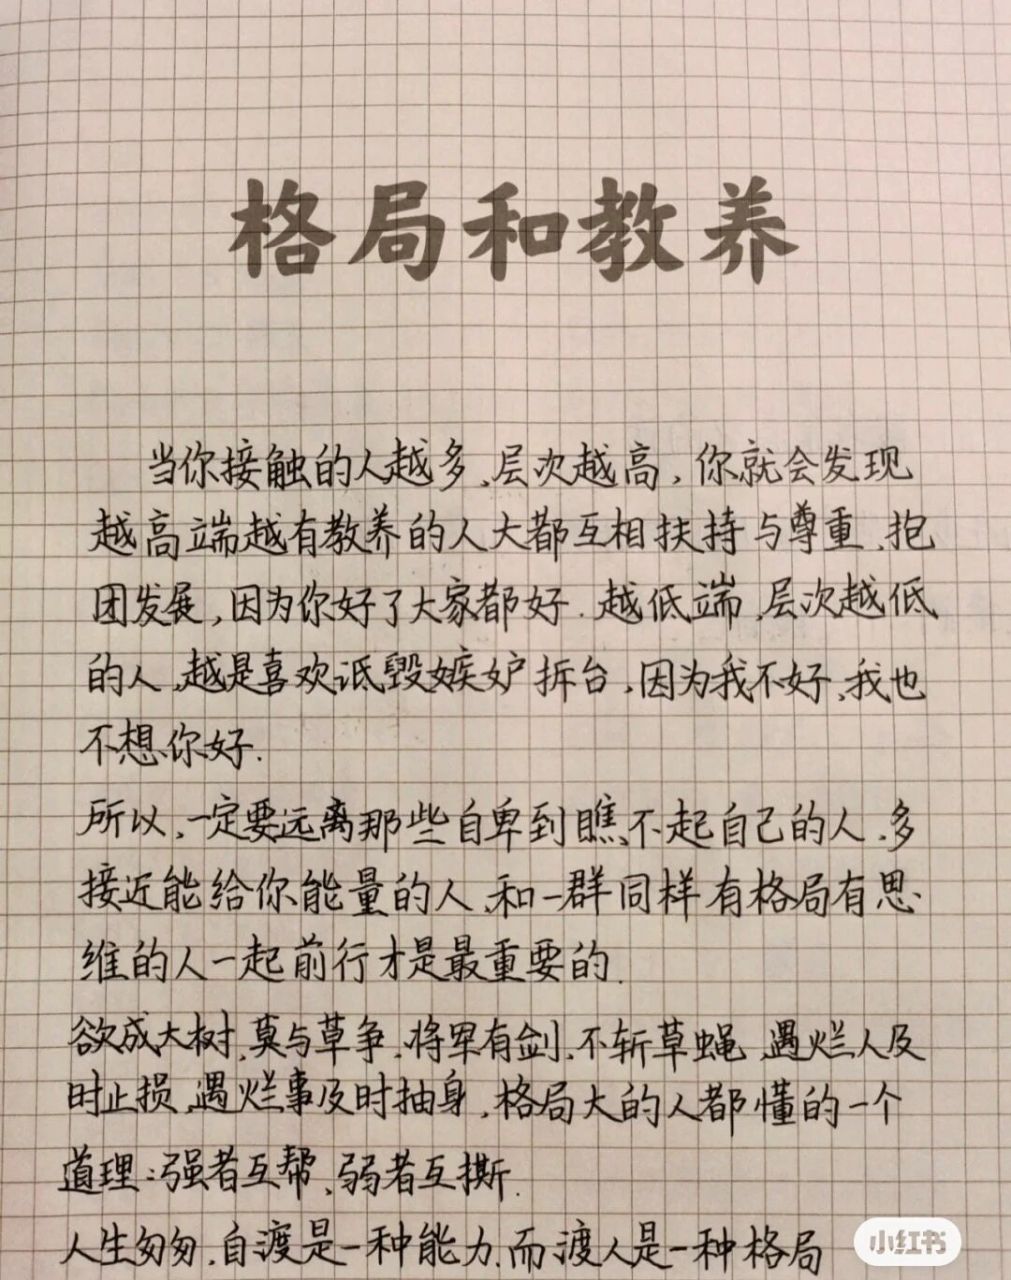 格局和教养
当你接触的人越多、层次越高，你就会发现
越高端越有教养的人大都互相扶持与尊重、抱
团发展，因为你好了大家都好．越低端、层次越低
的人、越是喜欢诋毁嫉妒拆台，因为我不好、我也
不想你好．
所以、一定要远离那些自卑到瞧不起自己的人、多
接近能给你能量的人、和一群同样有格局有思
维的人一起前行才是最重要的．
欲成大树、莫与草争、将军有剑、不斩草蝇、遇烂人及
时止损、遇烂事及时抽身、格局大的人都懂的一个
道理：强者互帮、弱者互撕．
人生匆匆、自渡是一种能力、而渡人是一种格局
小红书